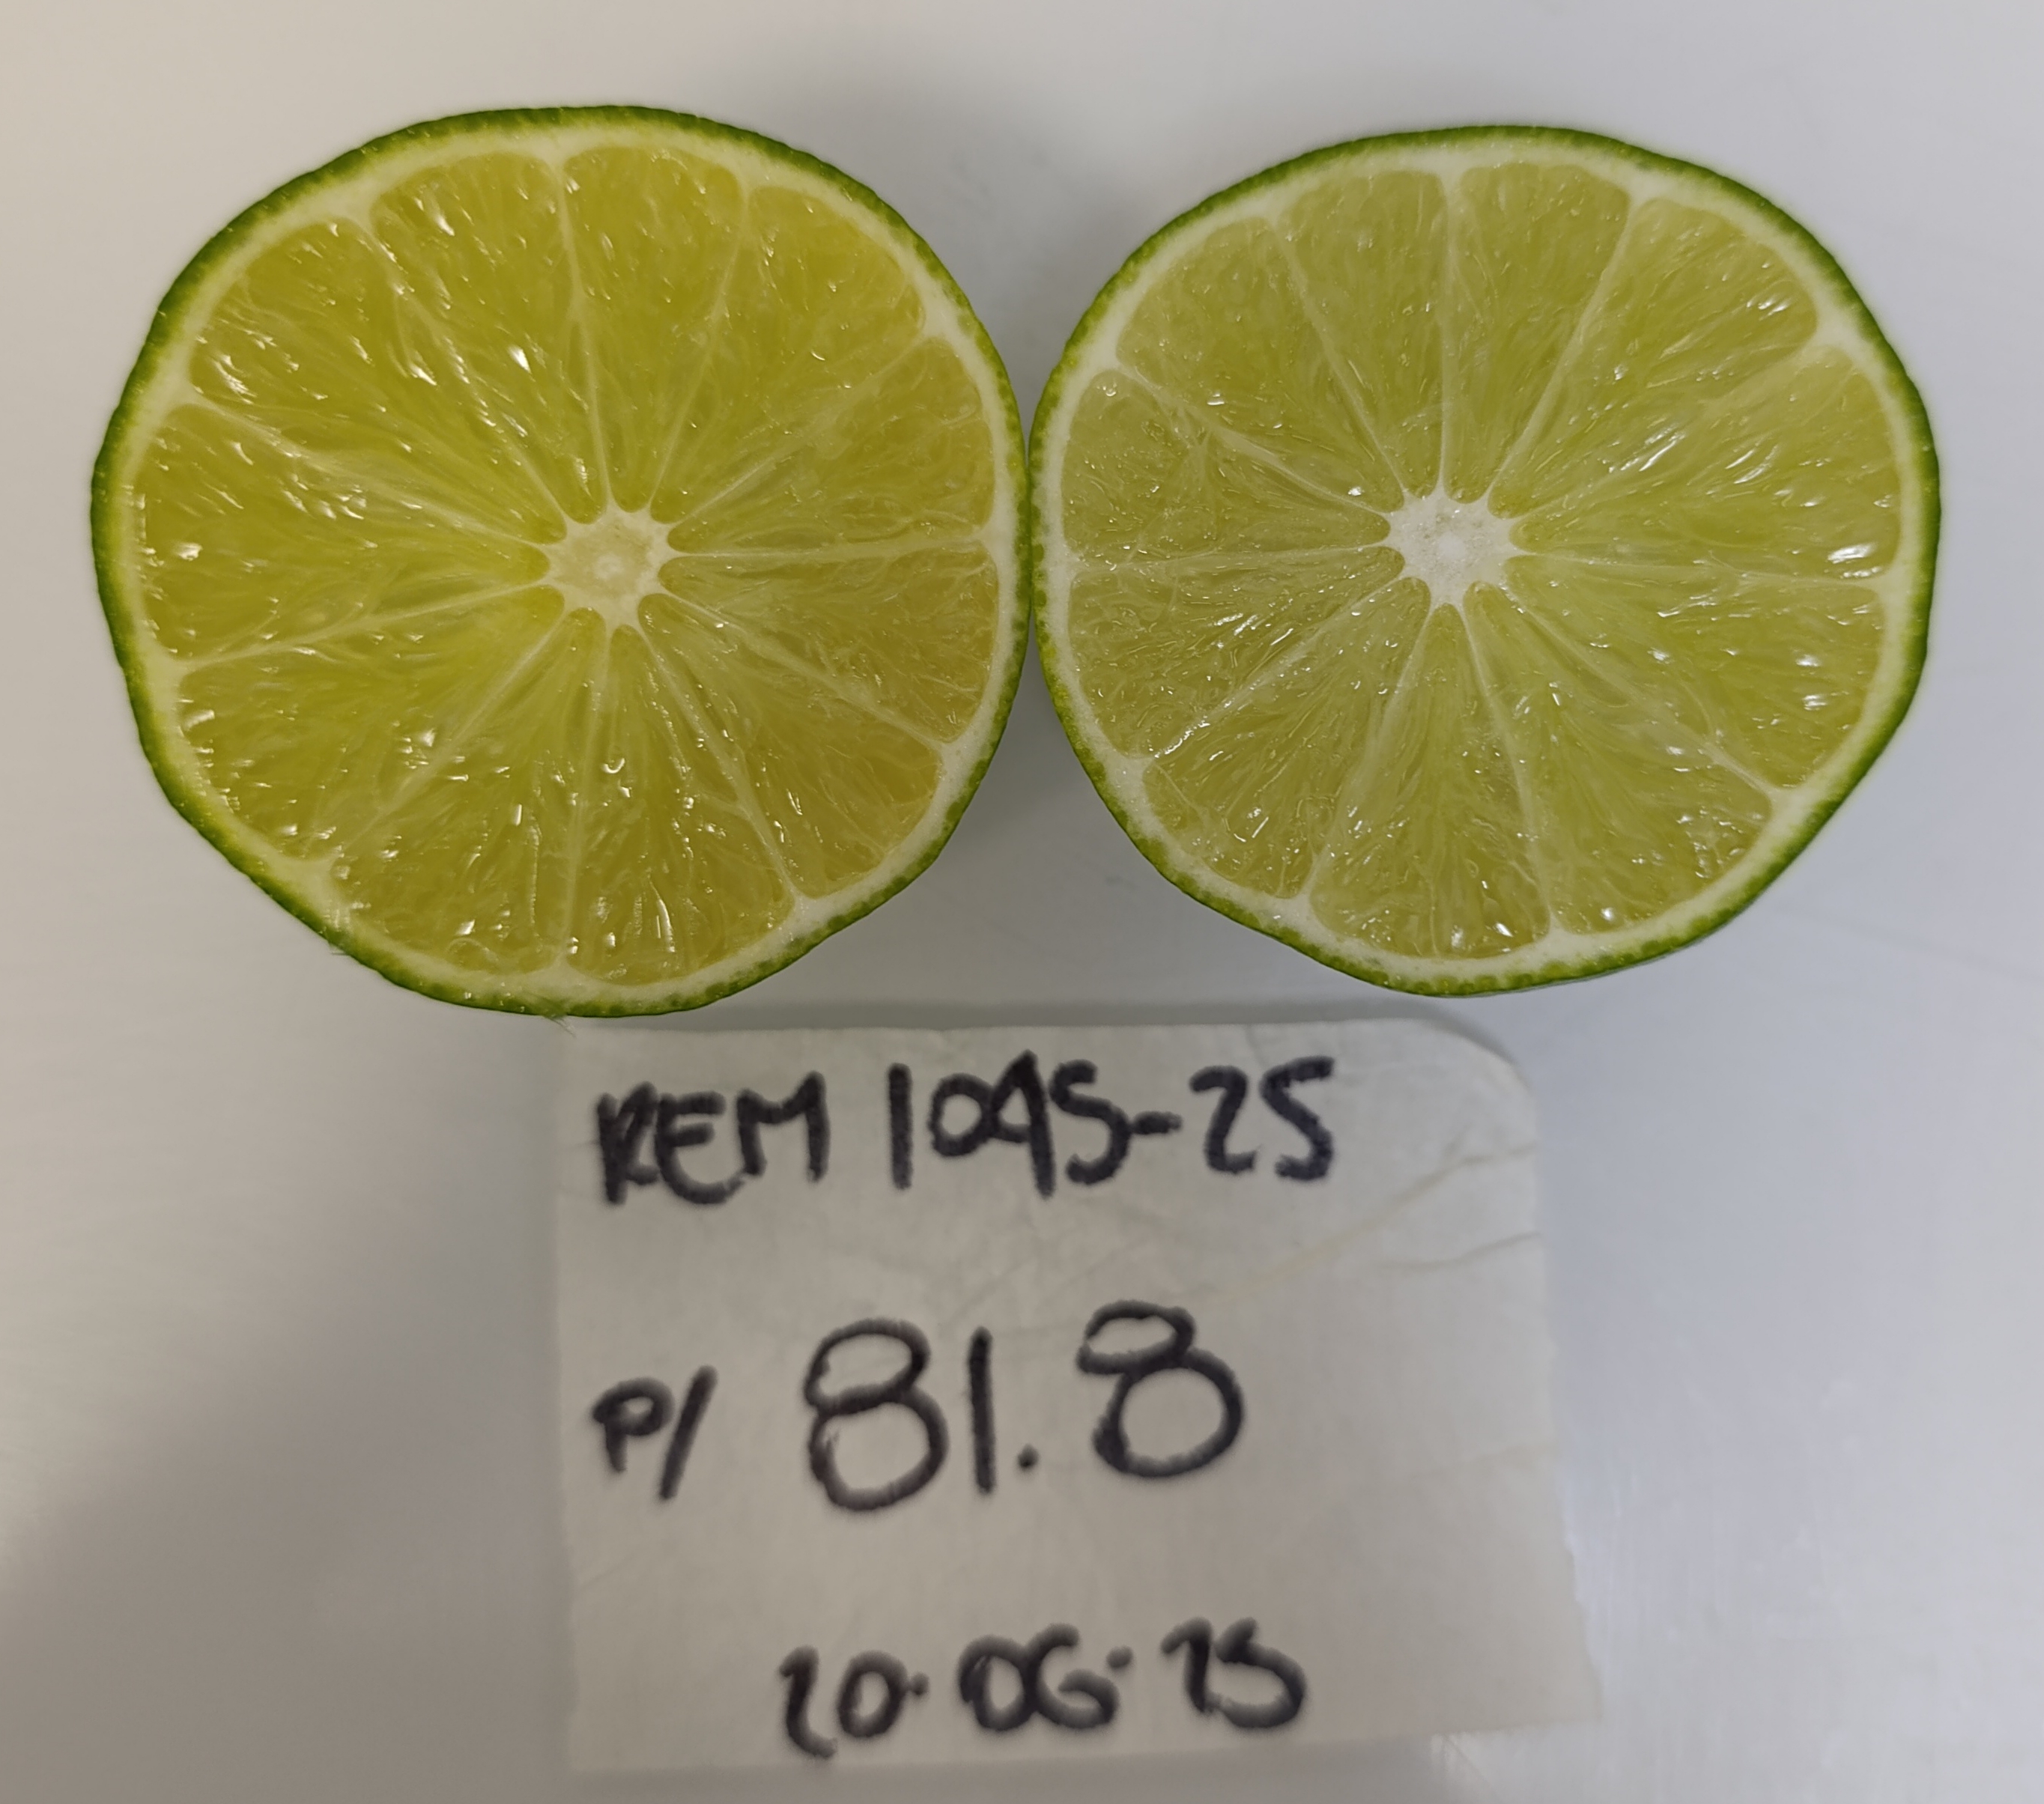 REM 1095-25
P/ 81.8
20.06.25